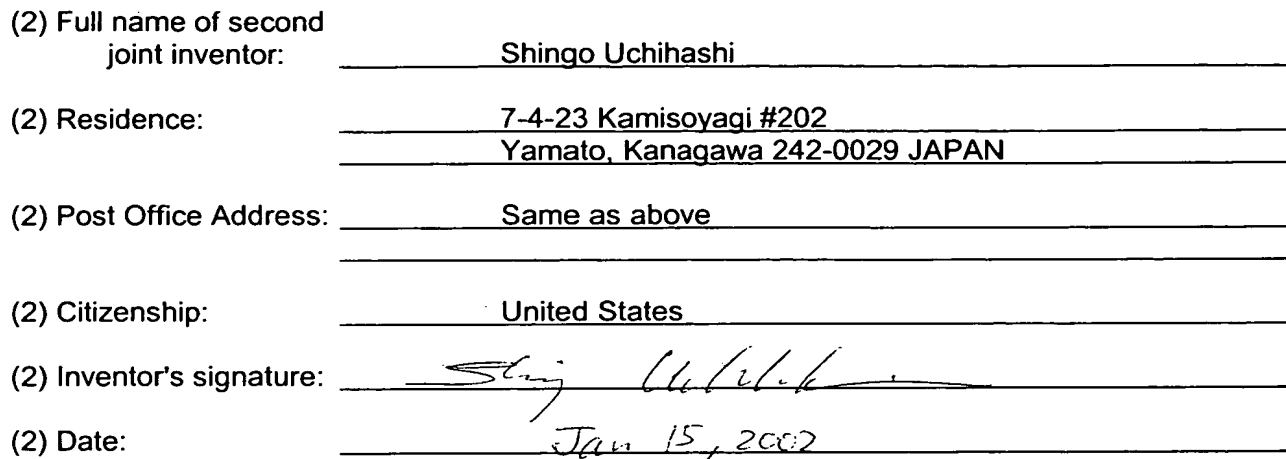 (2) Full name of second
joint inventor: Shingo Uchihashi
(2) Residence: 7-4-23 Kamisoyagi #202
Yamato, Kanagawa 242-0029 JAPAN
(2) Post Office Address: Same as above
(2) Citizenship: United States
(2) Inventor's signature:
(2) Date: Jan 15, 2002